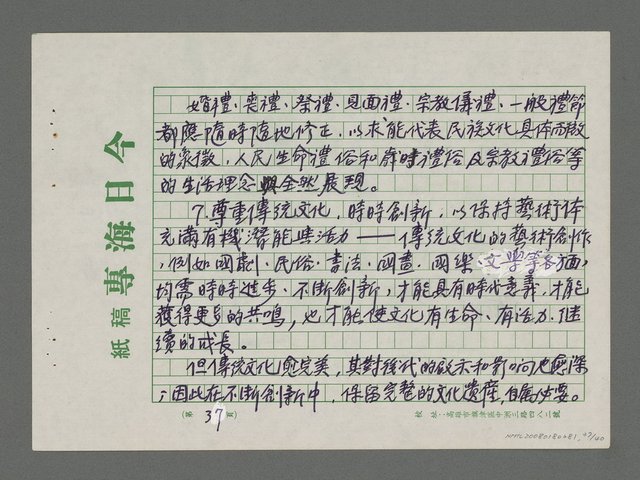 婚禮、喪禮、祭禮、見面禮、宗教儀禮、一般禮節
都應隨時隨地修正，以求能代表民族文化具体而微
的象徵，人民生命禮俗和歲時禮俗及宗教禮俗等
的生活理念與全然展現。
7.尊重傳統文化，時時創新，以保持藝術体
充滿有機潛能與活力——傳統文化的藝術創作
，例如國劇、民俗、書法、國畫、國樂、文學等各方面
均需時時進步、不斷創新，才能具有時代意義，才能
獲得更多的共鳴，也才能使文化有生命、有活力、继
續的成長。
但傳統文化愈完美，其對後代的啟示和影响也愈深
；因此在不斷創新中，保留完整的文化遺產，自屬必要。
今日海專
稿紙
（第37頁）
校址：高雄市旗津區中洲三路四八二號
NMTL20080180281, 37/40